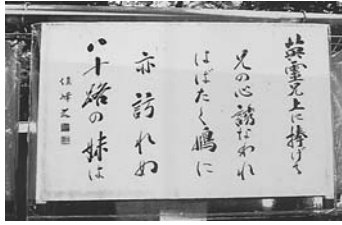 英霊兄上に捧げる
兄の心誘なわれ
はばたく鳩に
亦訪れぬ
八十路の妹は